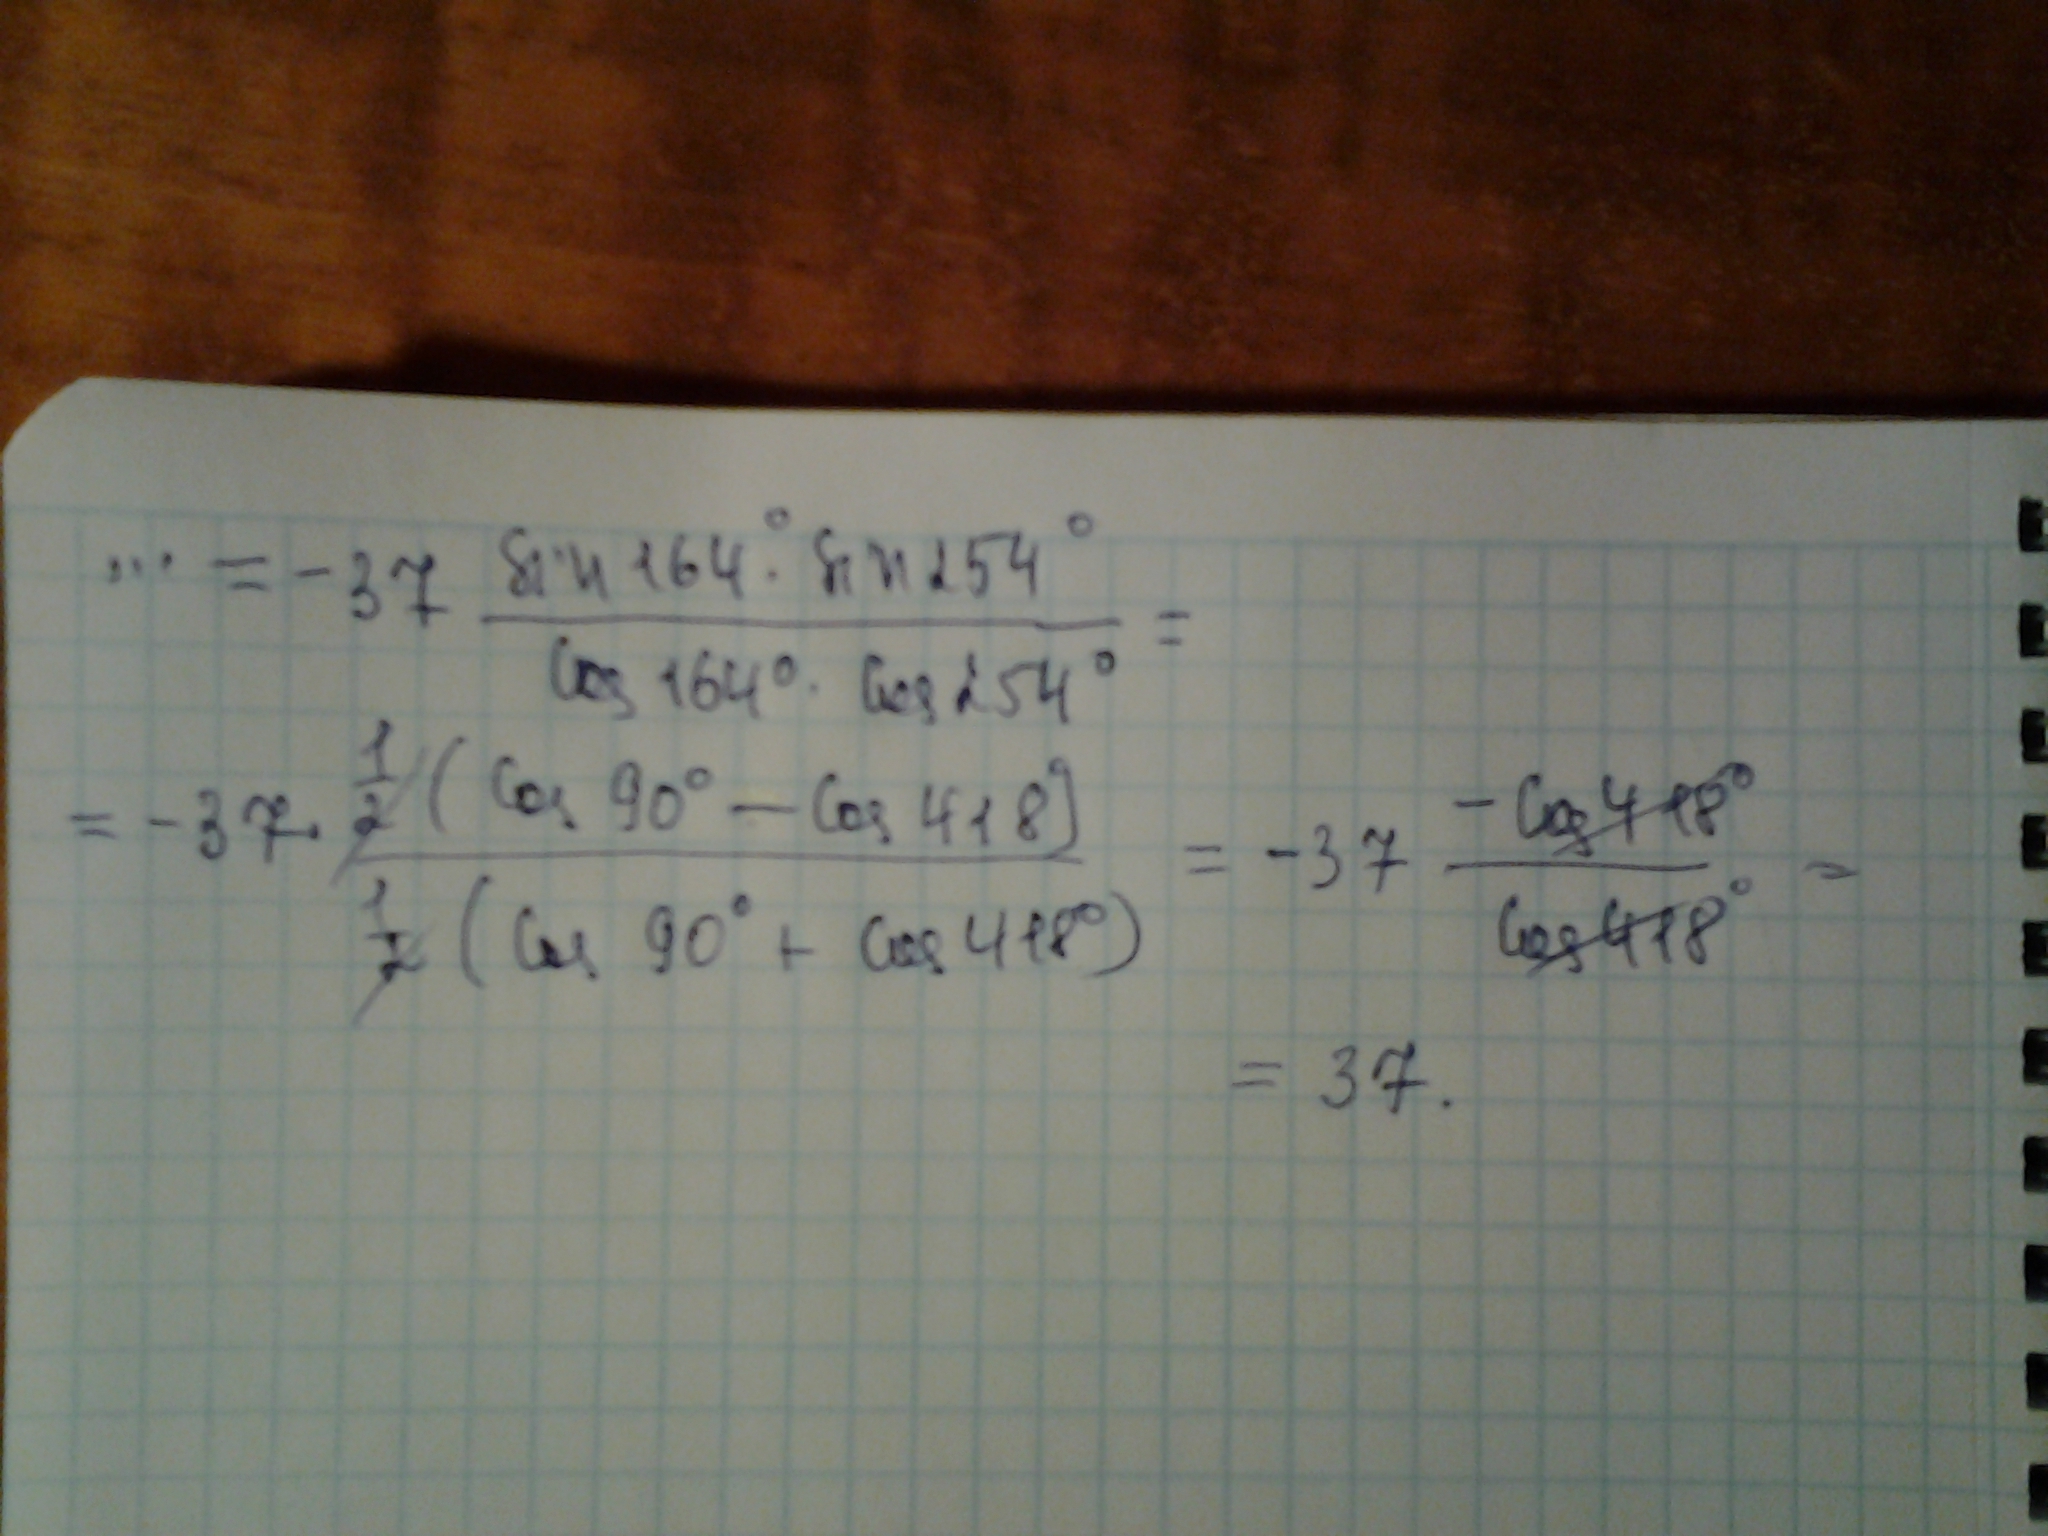 ... = -37 (sin 164° · sin 254°) / (cos 164° · cos 254°) =
= -37 · 1/2 (cos 90° - cos 418°) / 1/2 (cos 90° + cos 418°) = -37 (-cos 418°) / (cos 418°) =
= 37.